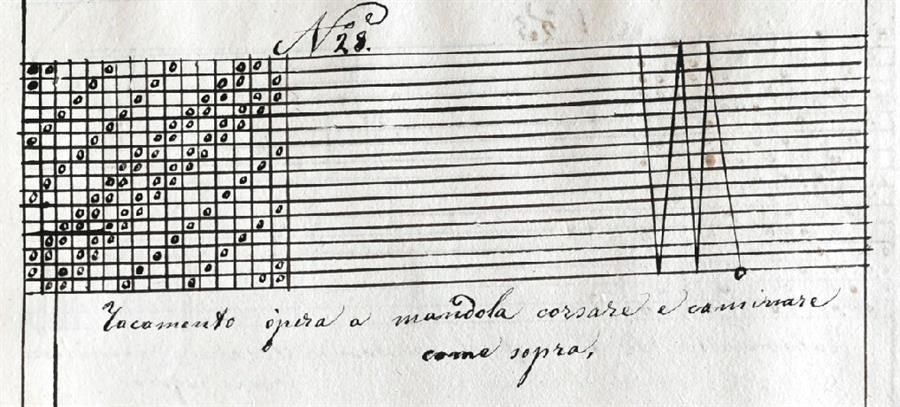 N.º 28.
Tacamento opera a mandola corsare e caminare
come sopra.